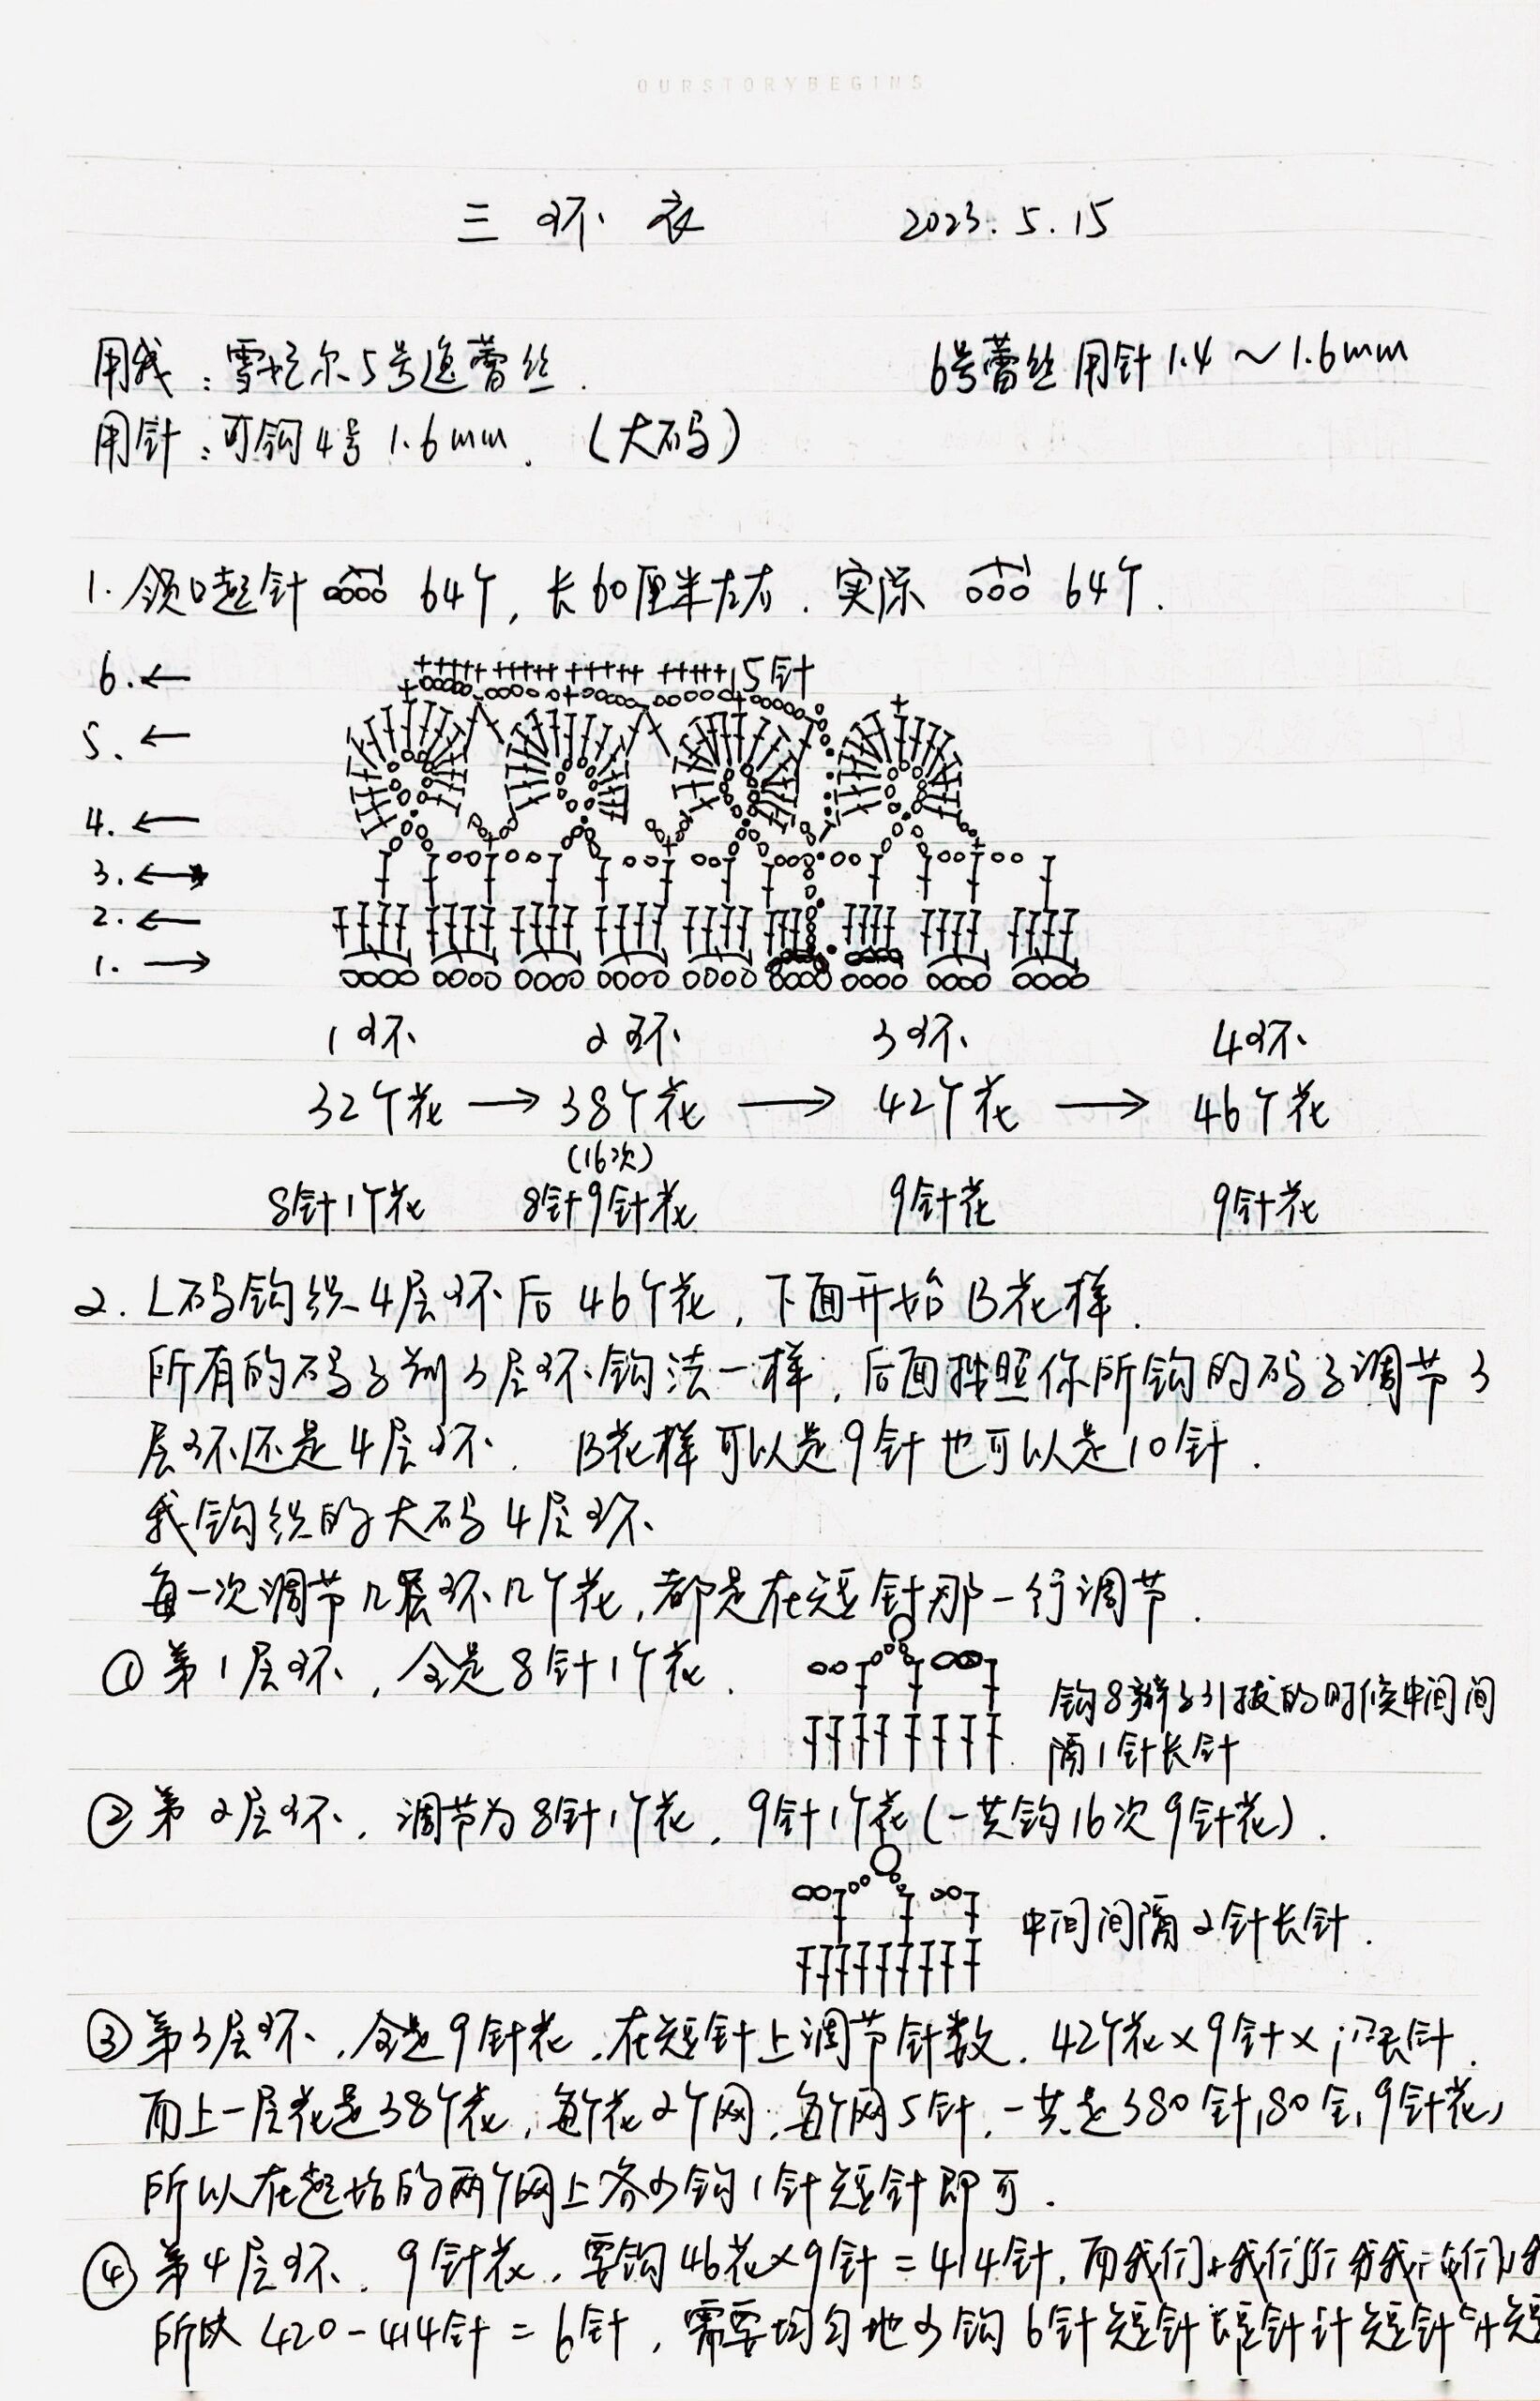 OURSTORYBEGINS
三环衣 2023.5.15
用线:雪妃尔5号 蕾丝. 6号蕾丝用针1.4~1.6mm
用针:可钩4号1.6mm.(大码)
1.领口起针 64个,长60厘米左右.实际 64个.
6.← 5针
5.←
4.←
3.←
2.←
1.→
1环 2环 3环 4环
32个花→38个花→42个花→46个花
(16次)
8针1个花 8针9针花 9针花 9针花
2.L码钩织4层环后46个花,下面开始B花样.
所有的码子前3层环钩法一样,后面按照你所钩的码子调节3
层环还是4层环.B花样可以是9针也可以是10针.
我钩织的大码4层环
每一次调节几层环几个花,都是在短针那一行调节.
①第1层环,全是8针1个花.
钩8瓣子引拔的时候中间间
隔1针长针
②第2层环,调节为8针1个花,9针1个花(一共钩16次9针花).
中间间隔2针长针.
③第3层环,全是9针花,在短针上调节针数.42个花×9针
而上一层花是38个花,每个花2个网,每个网5针,一共是380针, 9针花,
所以在起始的两个网上各少钩1针短针即可.
④第4层环.9针花,要钩46花×9针=414针,而我们
所以420-414针=6针,需要均匀地少钩6针短针